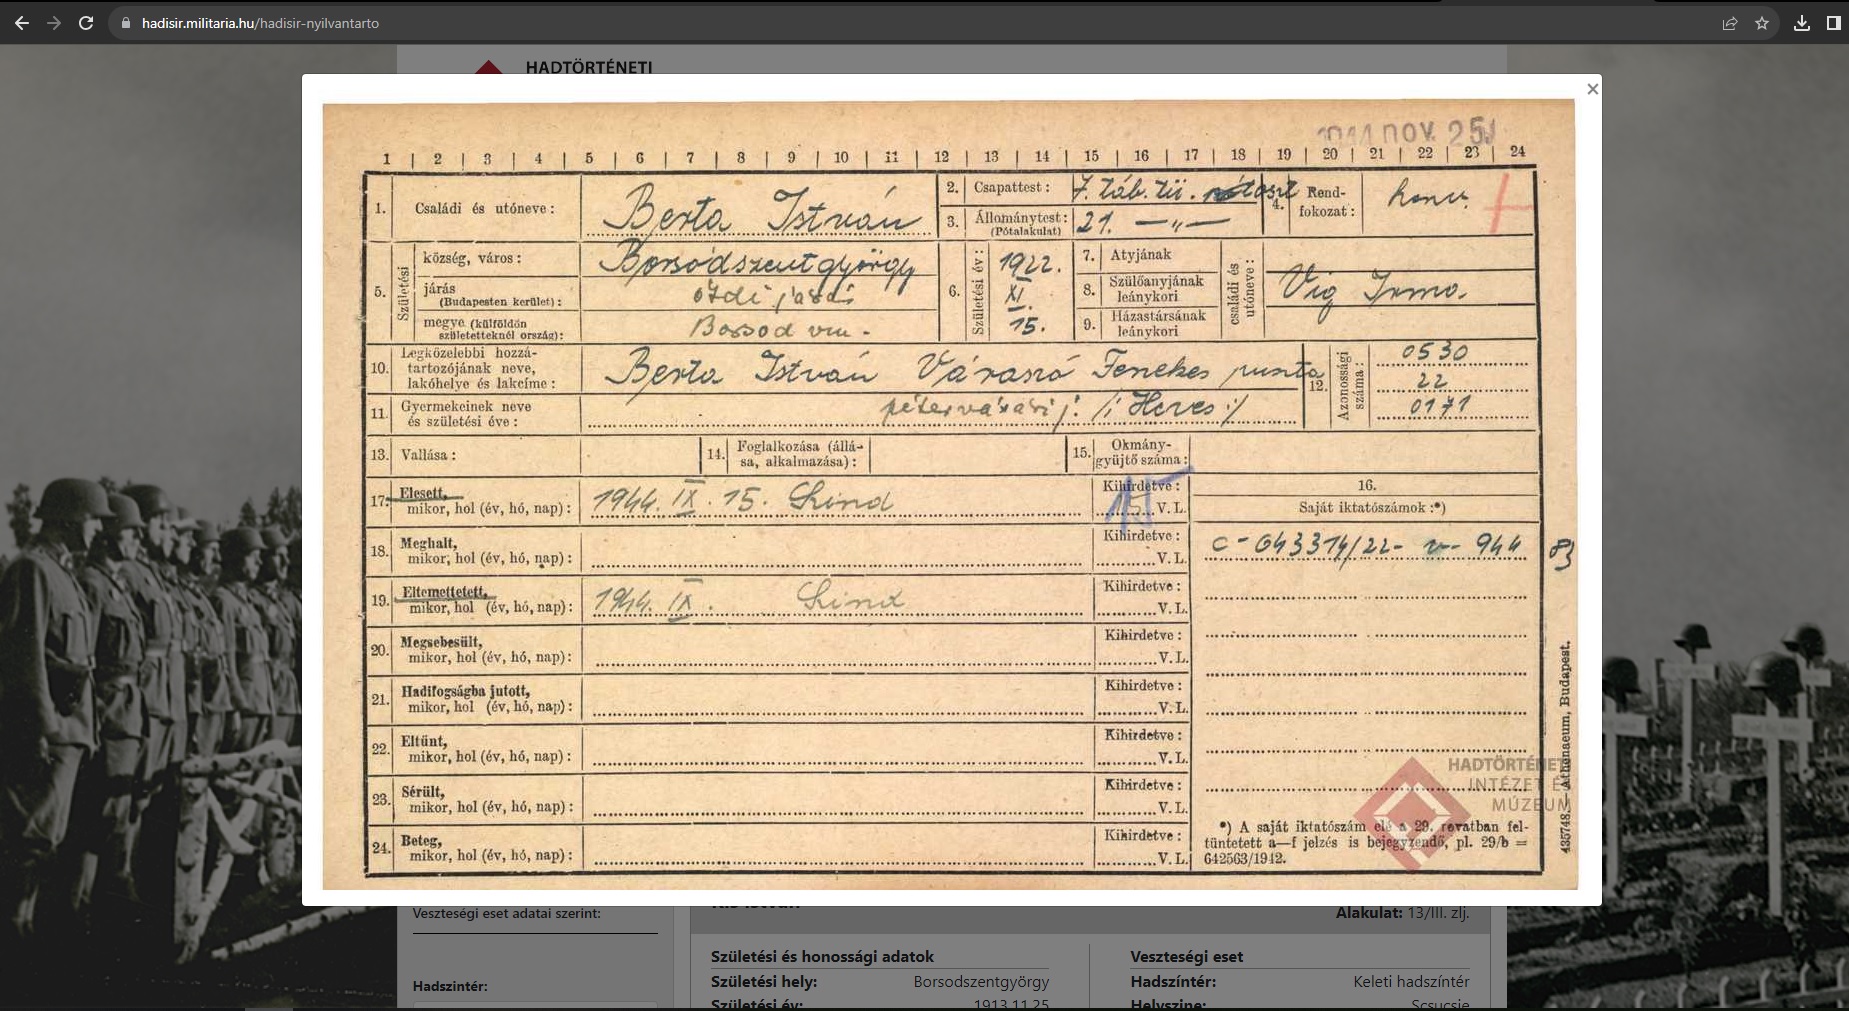 hadisir.militaria.hu/hadisir-nyilvantarto
HADTÖRTÉNETI
×
NOV. 25.
1 | 2 | 3 | 4 | 5 | 6 | 7 | 8 | 9 | 10 | 11 | 12 | 13 | 14 | 15 | 16 | 17 | 18 | 19 | 20 | 21 | 22 | 23 | 24
1. Családi és utóneve: Berta István
2. Csapattest: 7. táb. tü.
3. Állománytest: (Pótalakulat) 21. —„—
4. Rendfokozat: honv.
5. Születési
község, város: Borsódszentgyörgy
járás (Budapesten kerület): ózdi járás
megye (külföldön születetteknél ország): Borsod vm.
6. Születési év: 1922. XI. 15.
7. Atyjának
8. Szülőanyjának leánykori
9. Házastársának leánykori
családi és utóneve: Vig Irma.
10. Legközelebbi hozzátartozójának neve, lakóhelye és lakcíme: Berta István Váraszó Fenekes puszta
pétervásári j. /: Heves :/
11. Gyermekeinek neve és születési éve:
12. Azonossági száma: 0530
22
0171
13. Vallása:
14. Foglalkozása (állása, alkalmazása):
15. Okmánygyüjtő száma:
16.
Saját iktatószámok:*)
c-643314/22- v- 944 83
17. Elesett, mikor, hol (év, hó, nap): 1944. IX. 15. Lind
Kihirdetve: 15 V. L.
18. Meghalt, mikor, hol (év, hó, nap):
Kihirdetve: V. L.
19. Eltemettetett, mikor, hol (év, hó, nap): 1944. IX. Lind
Kihirdetve: V. L.
20. Megsebesült, mikor, hol (év, hó, nap):
Kihirdetve: V. L.
21. Hadifogságba jutott, mikor, hol (év, hó, nap):
Kihirdetve: V. L.
22. Eltünt, mikor, hol (év, hó, nap):
Kihirdetve: V. L.
23. Sérült, mikor, hol (év, hó, nap):
Kihirdetve: V. L.
24. Beteg, mikor, hol (év, hó, nap):
Kihirdetve: V. L.
*) A saját iktatószám elé a 29. rovatban fel-
tüntetett a—f jelzés is bejegyzendő, pl. 29/b =
642563/1942.
435748 — Athenaeum, Budapest.
HADTÖRTÉNETI
INTÉZET ÉS
MÚZEUM
Veszteségi eset adatai szerint:
Hadszintér:
Alakulat: 13/III. zlj.
Születési és honossági adatok
Születési hely: Borsodszentgyörgy
Születési év: 1913.11.25
Veszteségi eset
Hadszíntér: Keleti hadszíntér
Helyszíne: Scsucsje